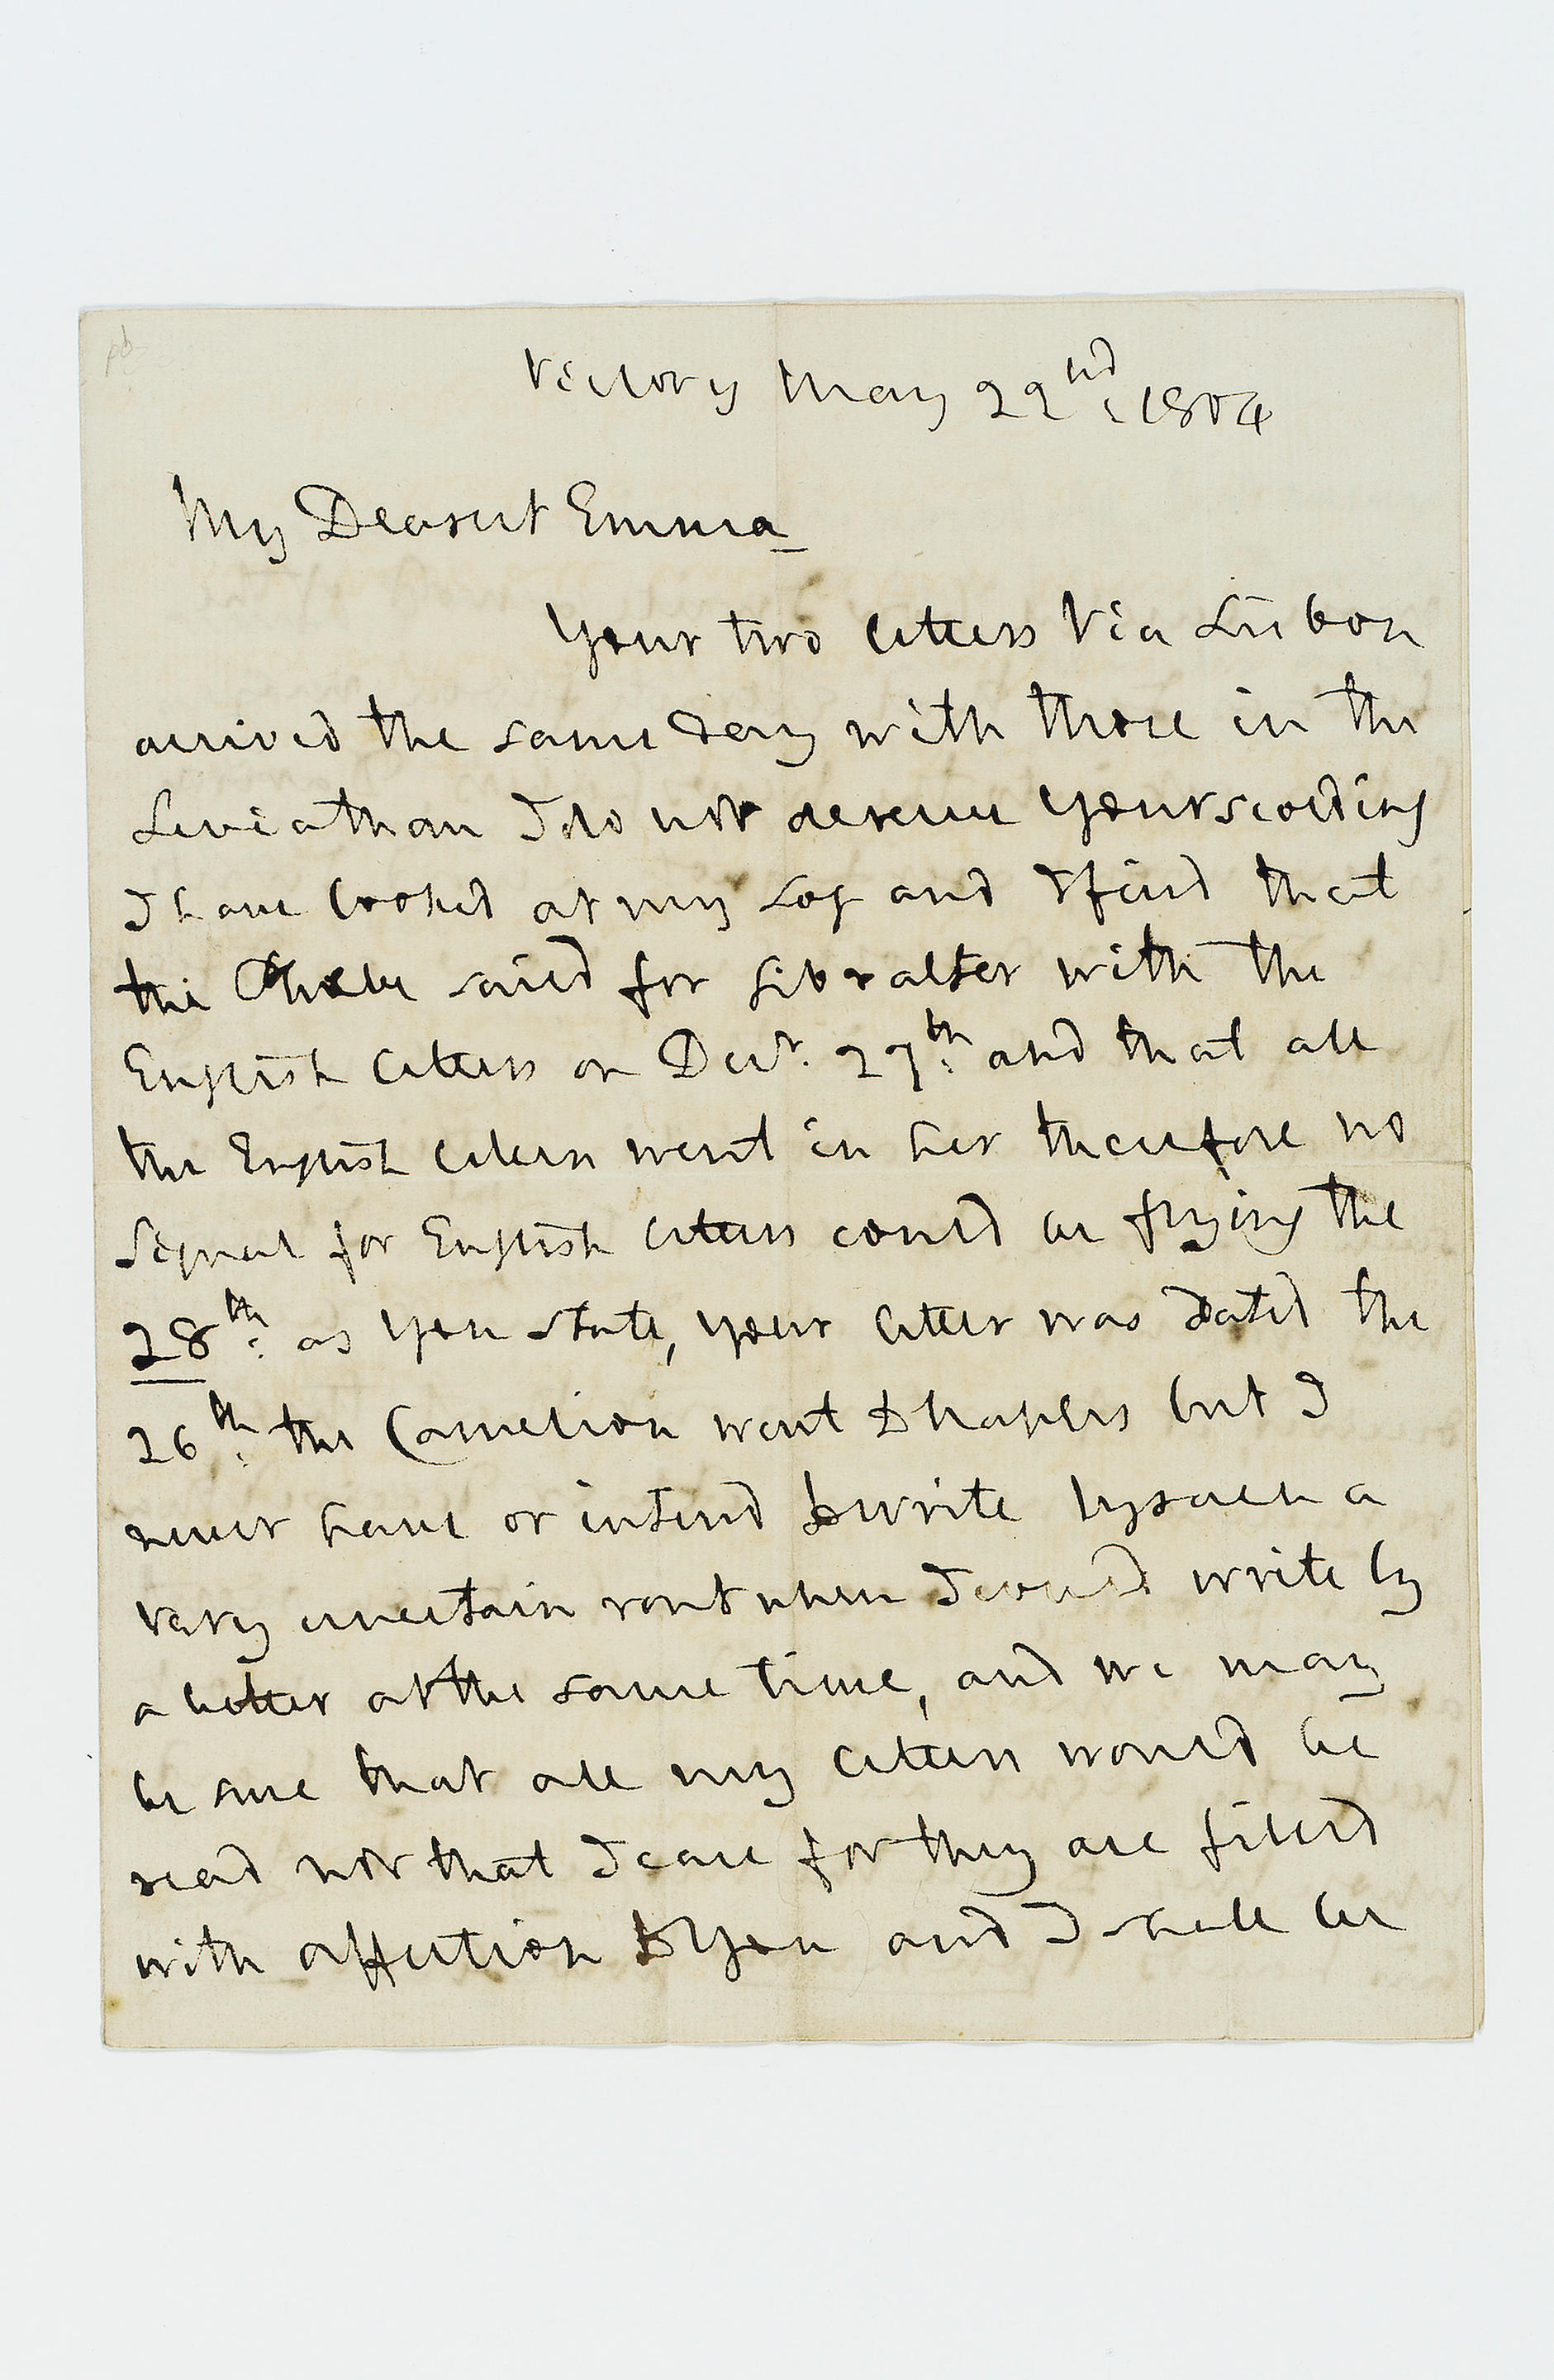 Victory May 22nd: 1804
My Dearest Emma
Your two letters Via Lisbon
arrived the same day with those in the
Leviathan I do not deserve your scolding
I have looked at my Log and I find that
the Phebe sailed for Gibralter with the
English letters on Decr. 27th: and that all
the English letters went in her therefore no
Signal for English letters could be flying the
28th: as you state, your letter was dated the
26th: the Camelion went to Naples but I
never have or intend to write by such a
very uncertain rout when I could write by
a better at the same time, and we may
be sure that all my letters would be
read not that I care for they are filled
with affection to you and I shall be